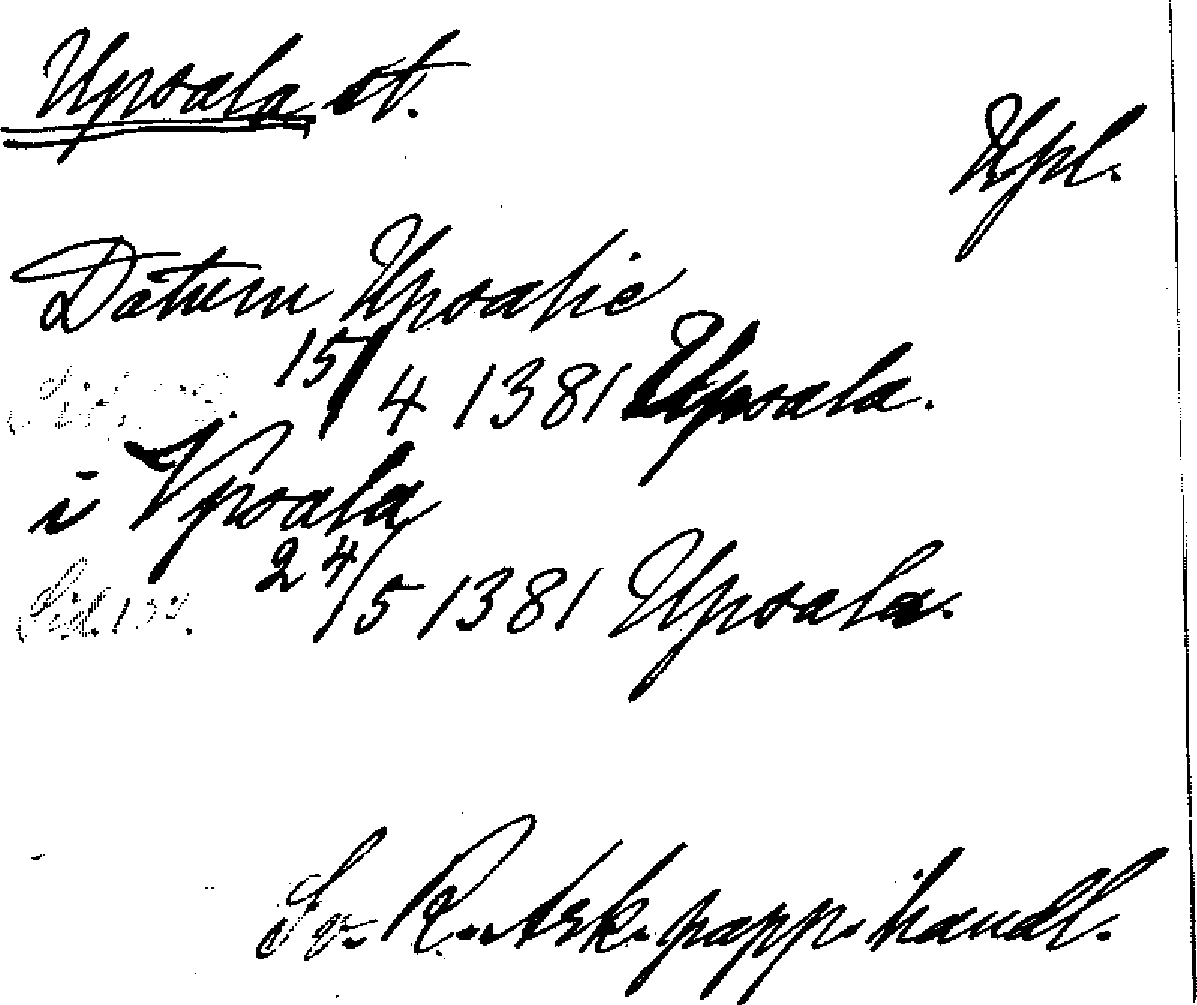 Upsala st.
Upl.
Datum Upsalie
15/4 1381 Upsala.
i Vpsala
24/5 1381 Upsala.
Sv. R. Ark. papp. handl.